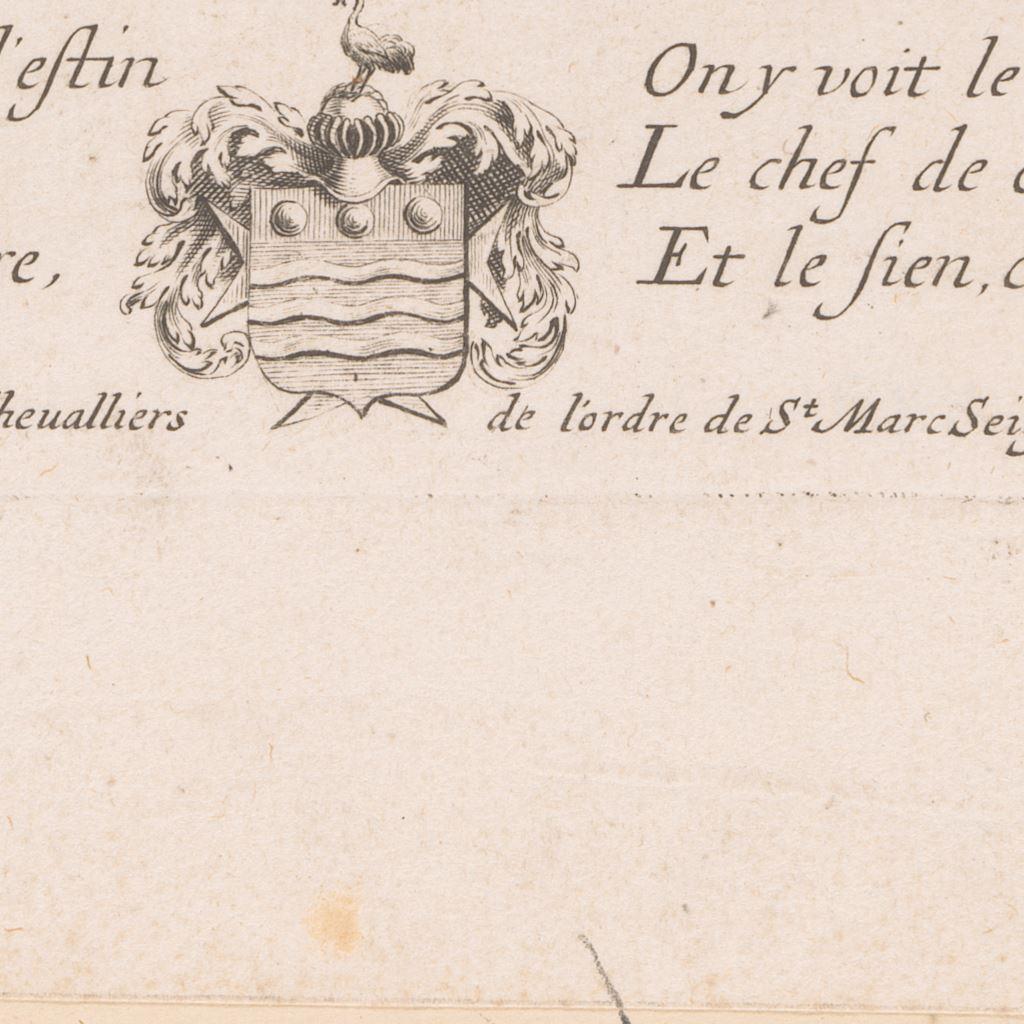 l'eſtin
On y voit le
Le chef de
re,
Et le ſien,
heualliers de l'ordre de St Marc Sei